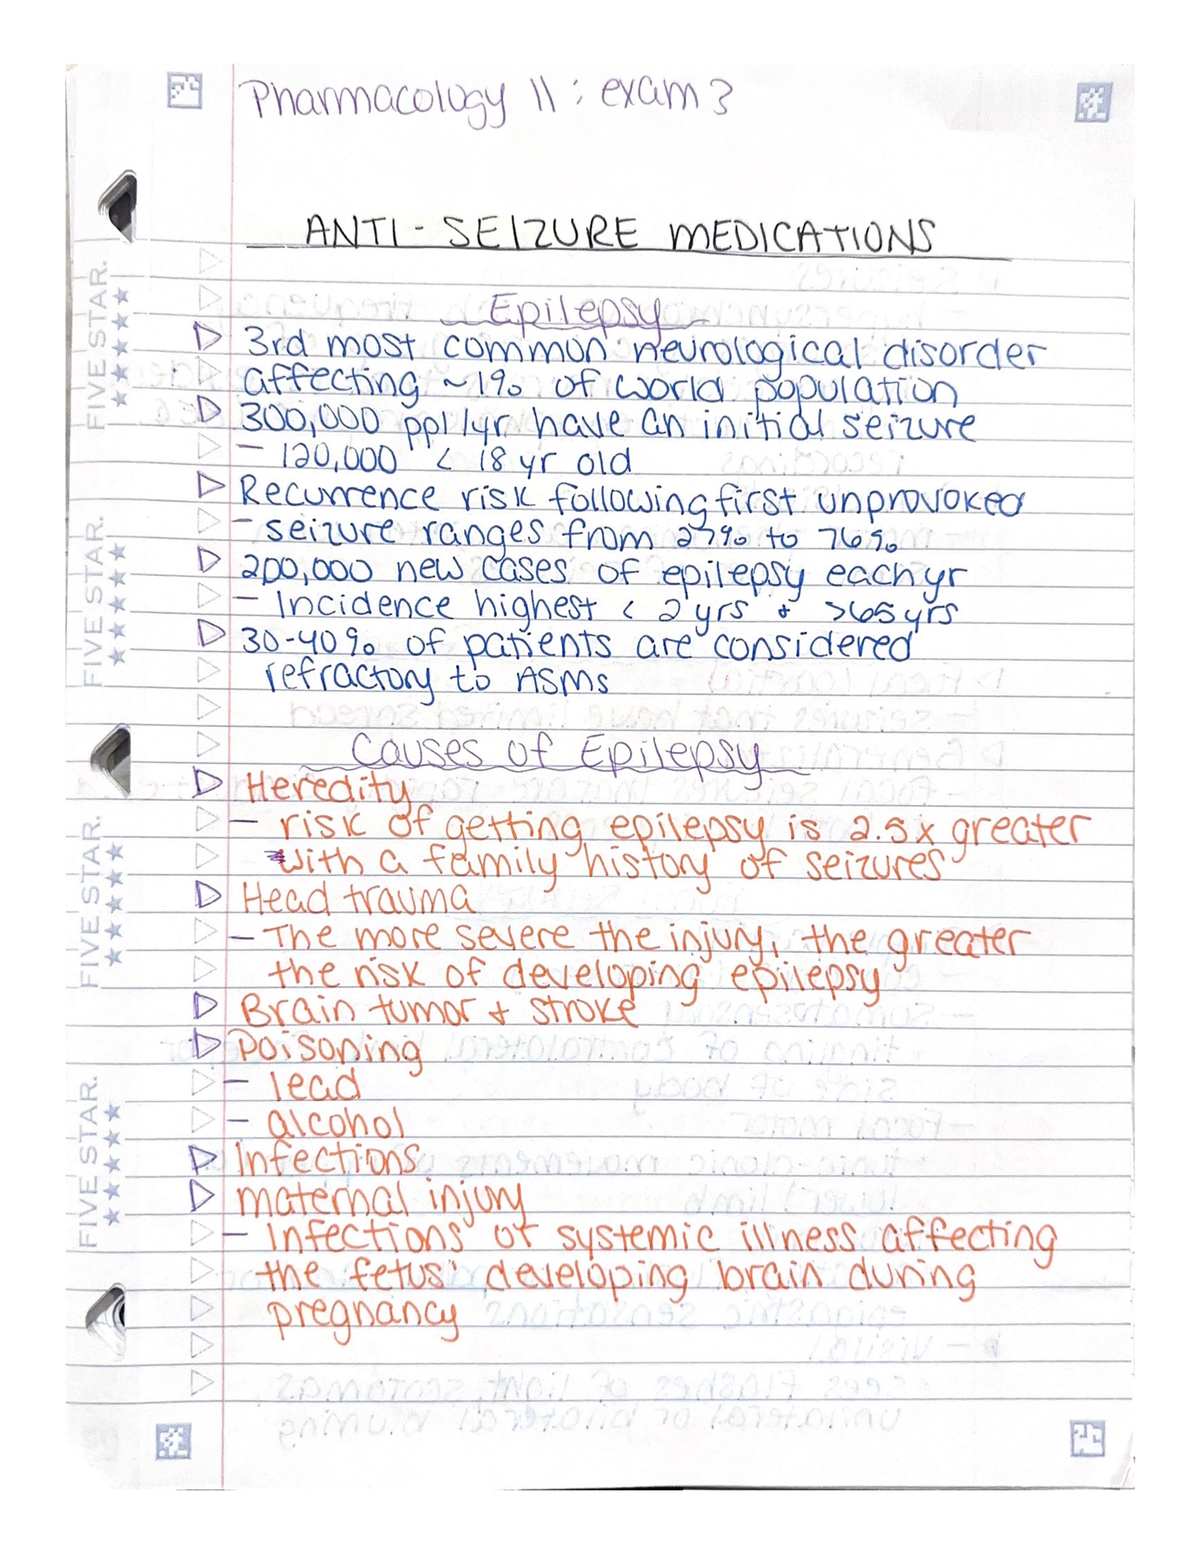 Pharmacology 11 : exam 3
ANTI-SEIZURE MEDICATIONS
Epilepsy
3rd most common neurological disorder
affecting ~1% of world population
300,000 ppl/yr have an initial seizure
- 120,000 < 18 yr old
Recurrence risk following first unprovoked
- seizure ranges from 27% to 76%
200,000 new cases of epilepsy each yr
- Incidence highest < 2 yrs + >65 yrs
30-40% of patients are considered
refractory to ASMs
Causes of Epilepsy
Heredity
- risk of getting epilepsy is 2.5x greater
with a family history of seizures
Head trauma
- The more severe the injury, the greater
the risk of developing epilepsy
Brain tumor + stroke
Poisoning
- lead
- alcohol
Infections
maternal injury
- Infections or systemic illness affecting
the fetus' developing brain during
pregnancy
FIVE STAR.
FIVE STAR.
FIVE STAR.
FIVE STAR.